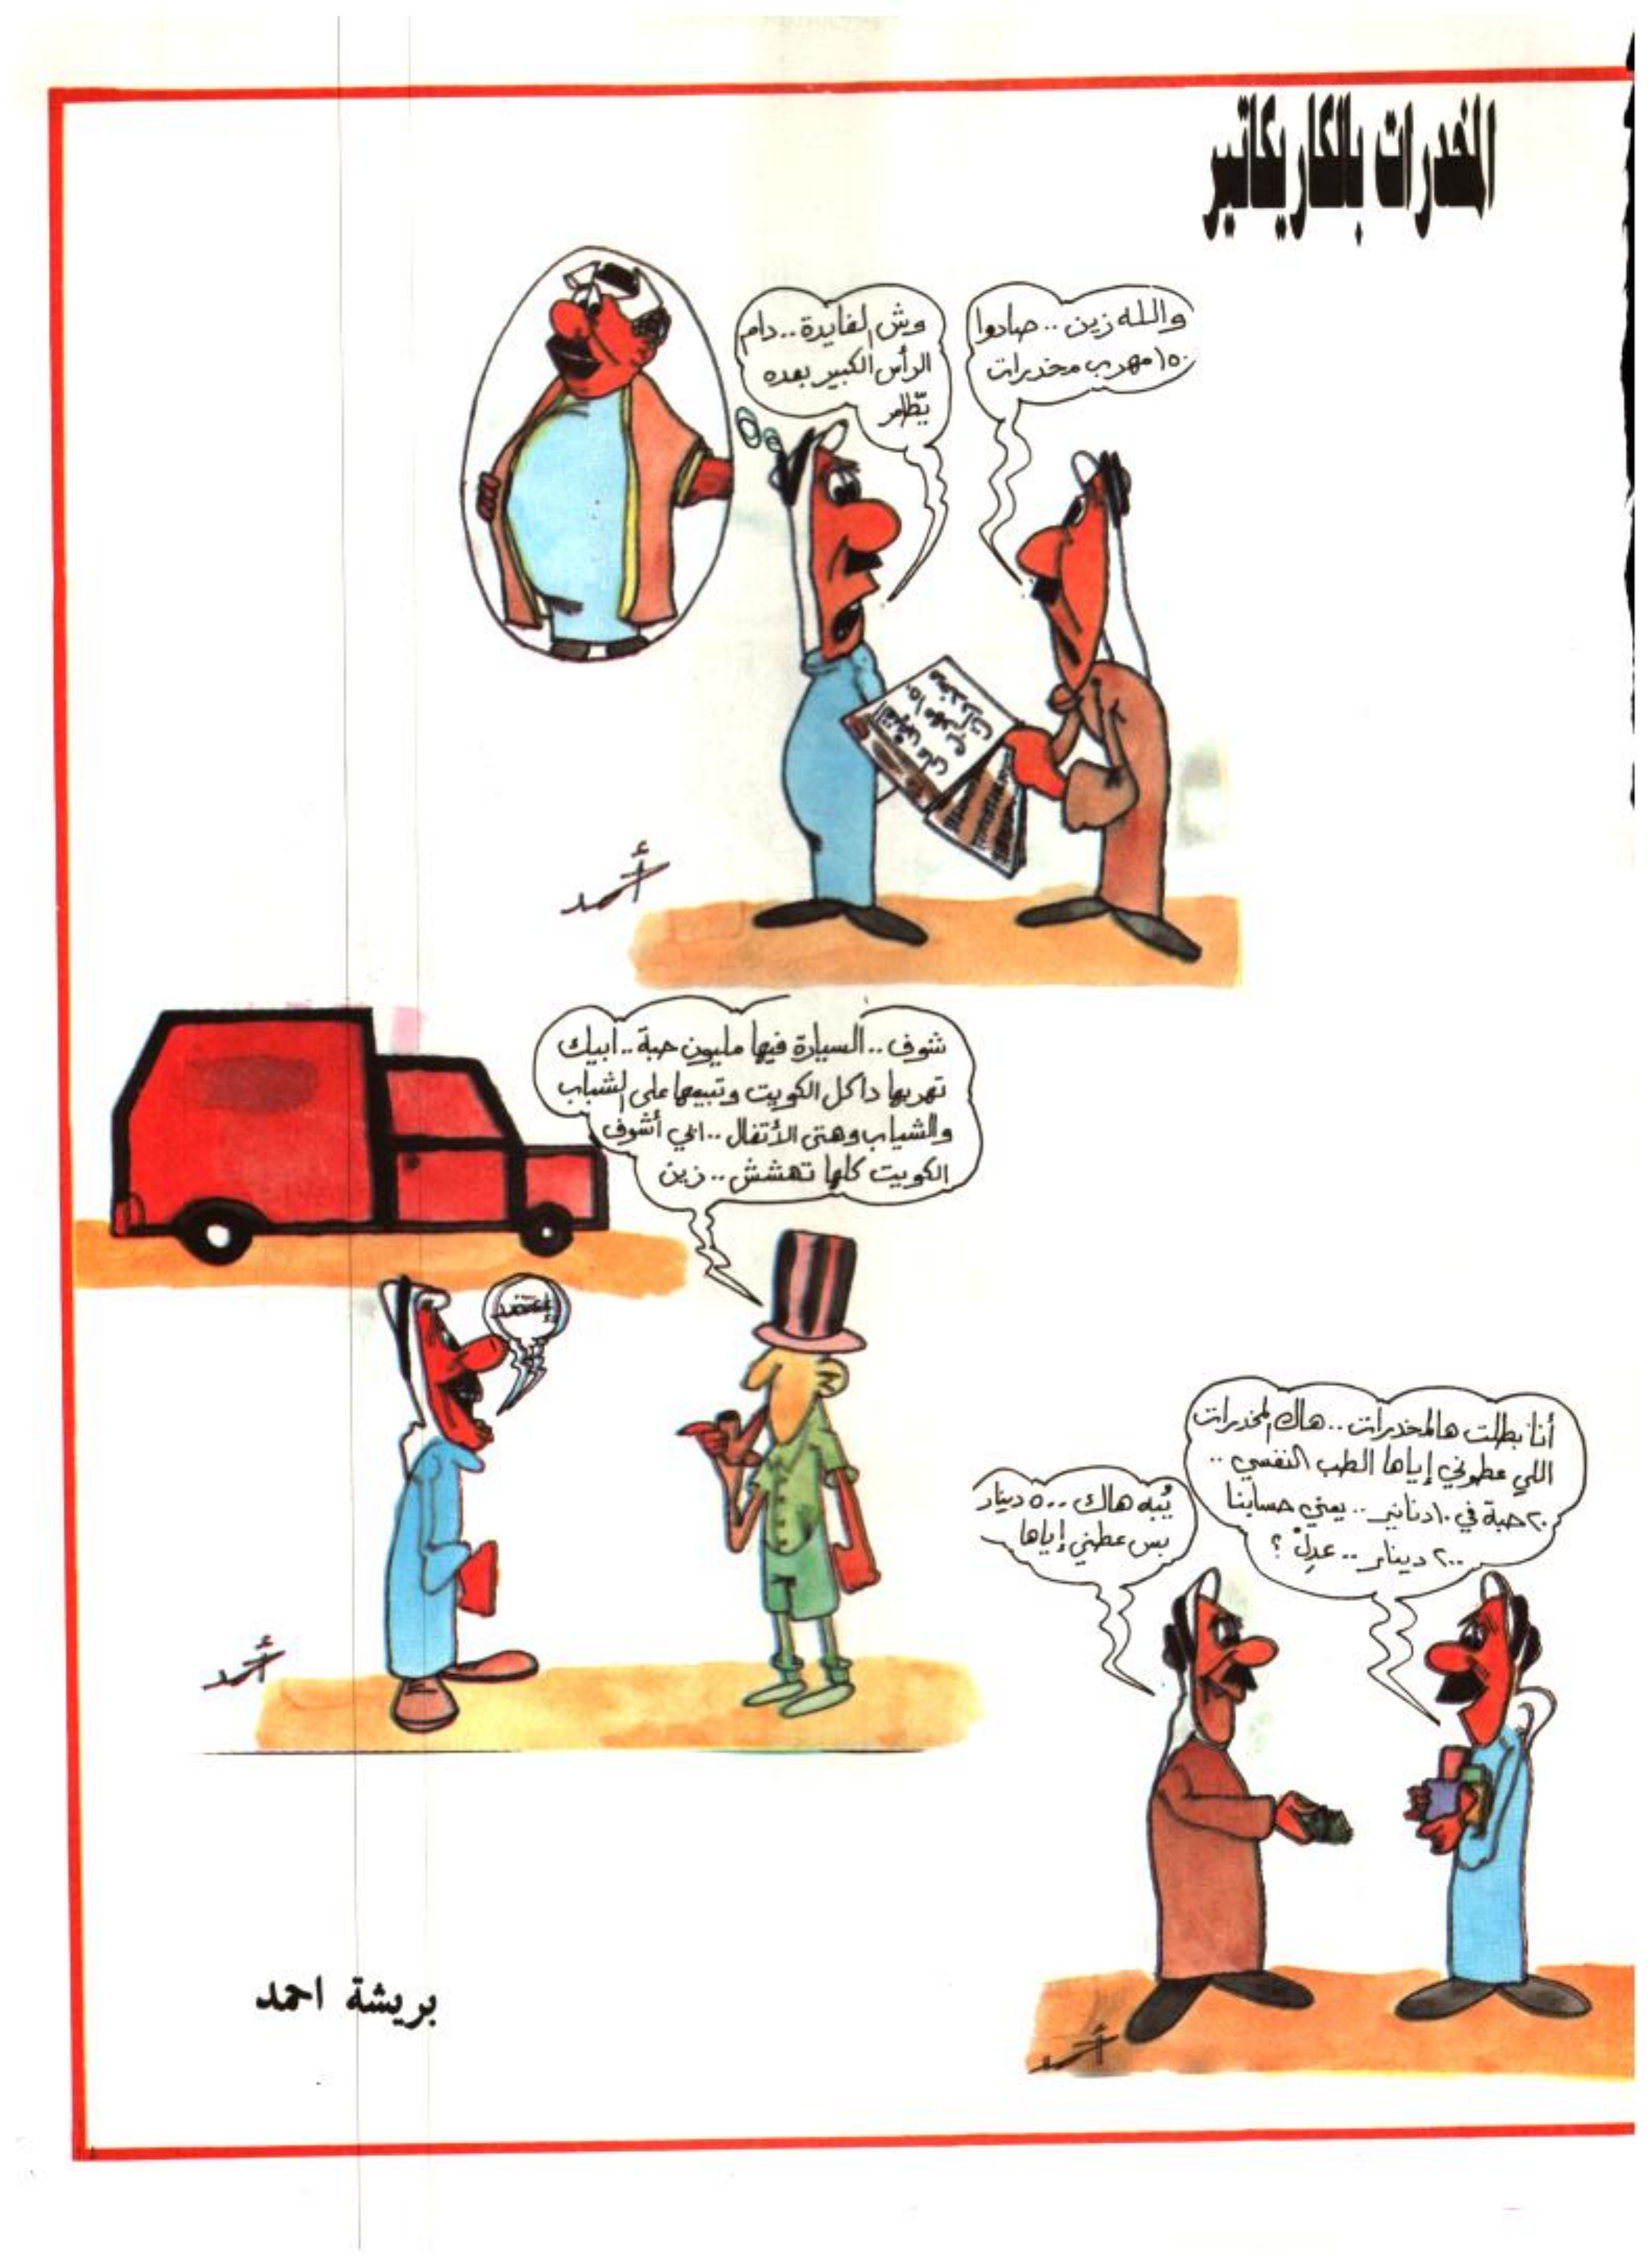 المخدرات بالكاريكاتير
والله زين .. صادوا
١٥٠ مهرب مخدرات
وش الفايدة .. دام
الرأس الكبير بعده
القبض على
١٥٠ مهرب
مخدرات
أحمد
شوف .. السيارة فيها مليون حبة .. ابيك
تهربها داكل الكويت وتبيعها على الشباب
والشياب وهتى الأتفال .. ابي أشوف
الكويت كلها تهشش .. زين
أحمد
أنا بطلت هالمخدرات .. هاك المخدرات
اللي عطوني إياها الطب النفسي ..
٢٠ حبة في ١٠ دنانير .. يعني حسابنا
٢٠٠ دينار .. عدل ؟
يُبه هاك ٥٠٠ دينار
بس عطني إياها
أحمد
بريشة احمد